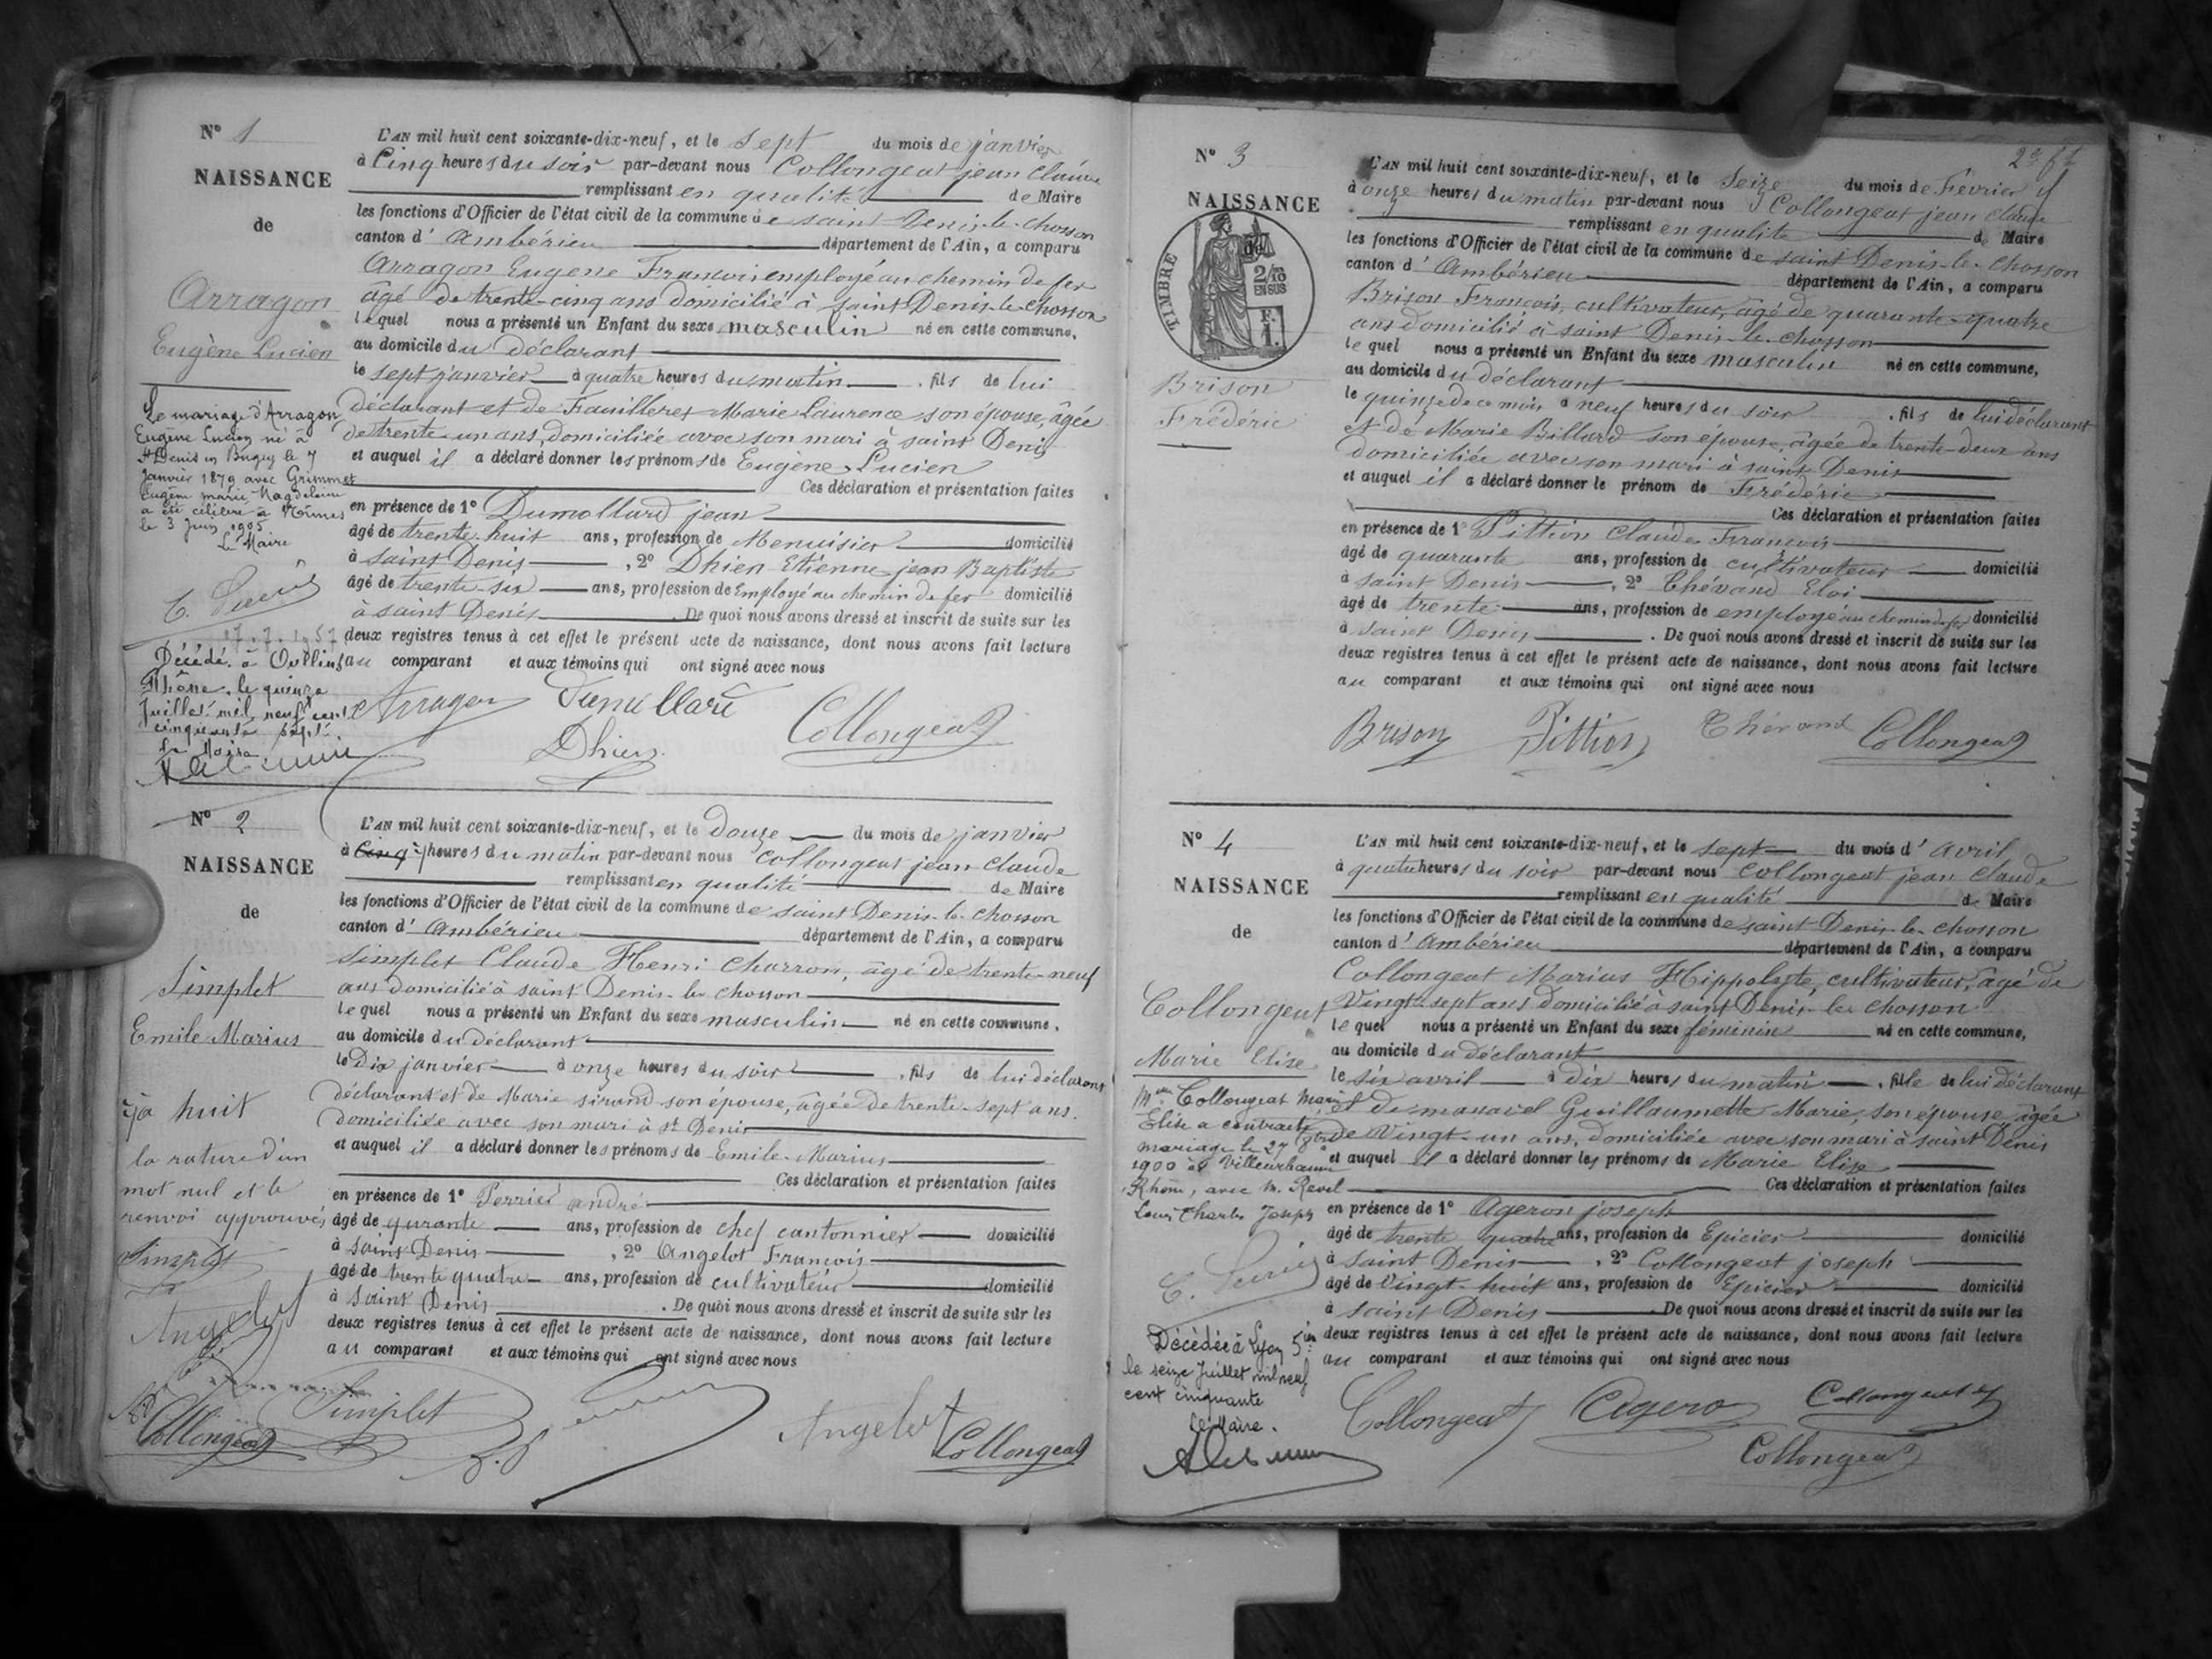 N° 1
NAISSANCE
de
Arragon
Eugène Lucien
L'AN mil huit cent soixante-dix-neuf, et le sept du mois de janvier
à Cinq heures du soir par-devant nous Collongeat jean Claude
remplissant en qualité de Maire
les fonctions d'Officier de l'état civil de la commune de saint Denis-le-chosson
canton d'Ambérieu département de l'Ain, a comparu
Arragon Eugène François employé au chemin de fer
âgé de trente-cinq ans domicilié à saint Denis-le-chosson
lequel nous a présenté un Enfant du sexe masculin né en cette commune,
au domicile du déclarant
le sept janvier à quatre heures du matin, fils de lui
déclarant et de Marie Laurence son épouse, âgée
de trente-un ans, domiciliée avec son mari à saint Denis
et auquel il a déclaré donner les prénoms de Eugène Lucien
Ces déclaration et présentation faites
en présence de 1° Dumollard jean
âgé de trente-huit ans, profession de Menuisier domicilié
à saint Denis, 2° Dhien Etienne jean Baptiste
âgé de trente-six ans, profession de Employé au chemin de fer domicilié
à saint Denis. De quoi nous avons dressé et inscrit de suite sur les
deux registres tenus à cet effet le présent acte de naissance, dont nous avons fait lecture
au comparant et aux témoins qui ont signé avec nous
Arragon Dumollard
Dhien Collongeat
Le mariage d'Arragon
Eugène Lucien né à
St Denis en Bugey le 7
Janvier 1879 avec Grimmet
Eugénie marie Magdeleine
a été célébré à
le 3 Juin 1905
Le Maire
17.7.1957
Décédé à Oullins
Rhône, le quinze
Juillet mil neuf cent
cinquante sept
Le Maire
N° 2
NAISSANCE
de
Simplet
Emile Marius
L'AN mil huit cent soixante-dix-neuf, et le douze du mois de janvier
à cinq heures du matin par-devant nous Collongeat jean Claude
remplissant en qualité de Maire
les fonctions d'Officier de l'état civil de la commune de saint Denis-le-chosson
canton d'Ambérieu département de l'Ain, a comparu
Simplet Claude Henri Charron, âgé de trente-neuf
ans domicilié à saint Denis-le-chosson
lequel nous a présenté un Enfant du sexe masculin né en cette commune,
au domicile du déclarant
le Dix janvier à onze heures du soir, fils de lui déclarant
déclarant et de Marie sirand son épouse, âgée de trente-sept ans.
domiciliée avec son mari à st Denis
et auquel il a déclaré donner les prénoms de Emile-Marius
Ces déclaration et présentation faites
en présence de 1° Perrier andré
âgé de qurante ans, profession de chef cantonnier domicilié
à saint Denis, 2° Angelot François
âgé de trente quatre ans, profession de cultivateur domicilié
à saint Denis. De quoi nous avons dressé et inscrit de suite sur les
deux registres tenus à cet effet le présent acte de naissance, dont nous avons fait lecture
au comparant et aux témoins qui ont signé avec nous
huit
la rature d'un
mot nul et le
renvoi approuvés
Simplet
Angelot
Collongeat Simplet Angelot Collongeat
2e ft
N° 3
NAISSANCE
de
TIMBRE
2/10
EN SUS
F.
1.
Brison
Frédéric
L'AN mil huit cent soixante-dix-neuf, et le Seize du mois de Février
à onze heures du matin par-devant nous Collongeat jean Claude
remplissant en qualité de Maire
les fonctions d'Officier de l'état civil de la commune de saint Denis-le-chosson
canton d'Ambérieu département de l'Ain, a comparu
Brison François, cultivateur, âgé de quarante-quatre
ans domicilié à saint Denis-le-chosson
lequel nous a présenté un Enfant du sexe masculin né en cette commune,
au domicile du déclarant
le quinze de ce mois à neuf heures du soir, fils de lui déclarant
et de Marie Billard son épouse, âgée de trente-deux ans
domiciliée avec son mari à saint Denis
et auquel il a déclaré donner le prénom de Frédéric
Ces déclaration et présentation faites
en présence de 1° Pittion Claude François
âgé de quarante ans, profession de cultivateur domicilié
à saint Denis, 2° Chévand Eloi
âgé de trente ans, profession de employé au chemin de fer domicilié
à saint Denis. De quoi nous avons dressé et inscrit de suite sur les
deux registres tenus à cet effet le présent acte de naissance, dont nous avons fait lecture
au comparant et aux témoins qui ont signé avec nous
Brison Pittion Chévand Collongeat
N° 4
NAISSANCE
de
Collongeat
Marie Elise
L'AN mil huit cent soixante-dix-neuf, et le sept du mois d'avril
à quatre heures du soir par-devant nous Collongeat jean Claude
remplissant en qualité de Maire
les fonctions d'Officier de l'état civil de la commune de saint Denis-le-chosson
canton d'Ambérieu département de l'Ain, a comparu
Collongeat Marius Hippolyte, cultivateur, âgé de
Vingt-sept ans domicilié à saint Denis-le-chosson
lequel nous a présenté un Enfant du sexe féminin né en cette commune,
au domicile du déclarant
le six avril à dix heures du matin, fille de lui déclarant
et de Guillaumette Marie, son épouse, âgée
de Vingt-un ans, domiciliée avec son mari à saint Denis
et auquel il a déclaré donner les prénoms de Marie Elise
Ces déclaration et présentation faites
en présence de 1° Ageron joseph
âgé de trente quatre ans, profession de Epicier domicilié
à saint Denis, 2° Collongeat joseph
âgé de Vingt-huit ans, profession de Epicier domicilié
à saint Denis. De quoi nous avons dressé et inscrit de suite sur les
deux registres tenus à cet effet le présent acte de naissance, dont nous avons fait lecture
au comparant et aux témoins qui ont signé avec nous
Collongeat Ageron Collongeat
Collongeat
Collongeat Marie
Elise a contracté
mariage le 27
1900 à Villeurbanne
Rhône, avec M. Revel
Louis Charles Joseph
Décédée à Lyon 5e
le seize Juillet mil neuf
cent cinquante
le Maire.